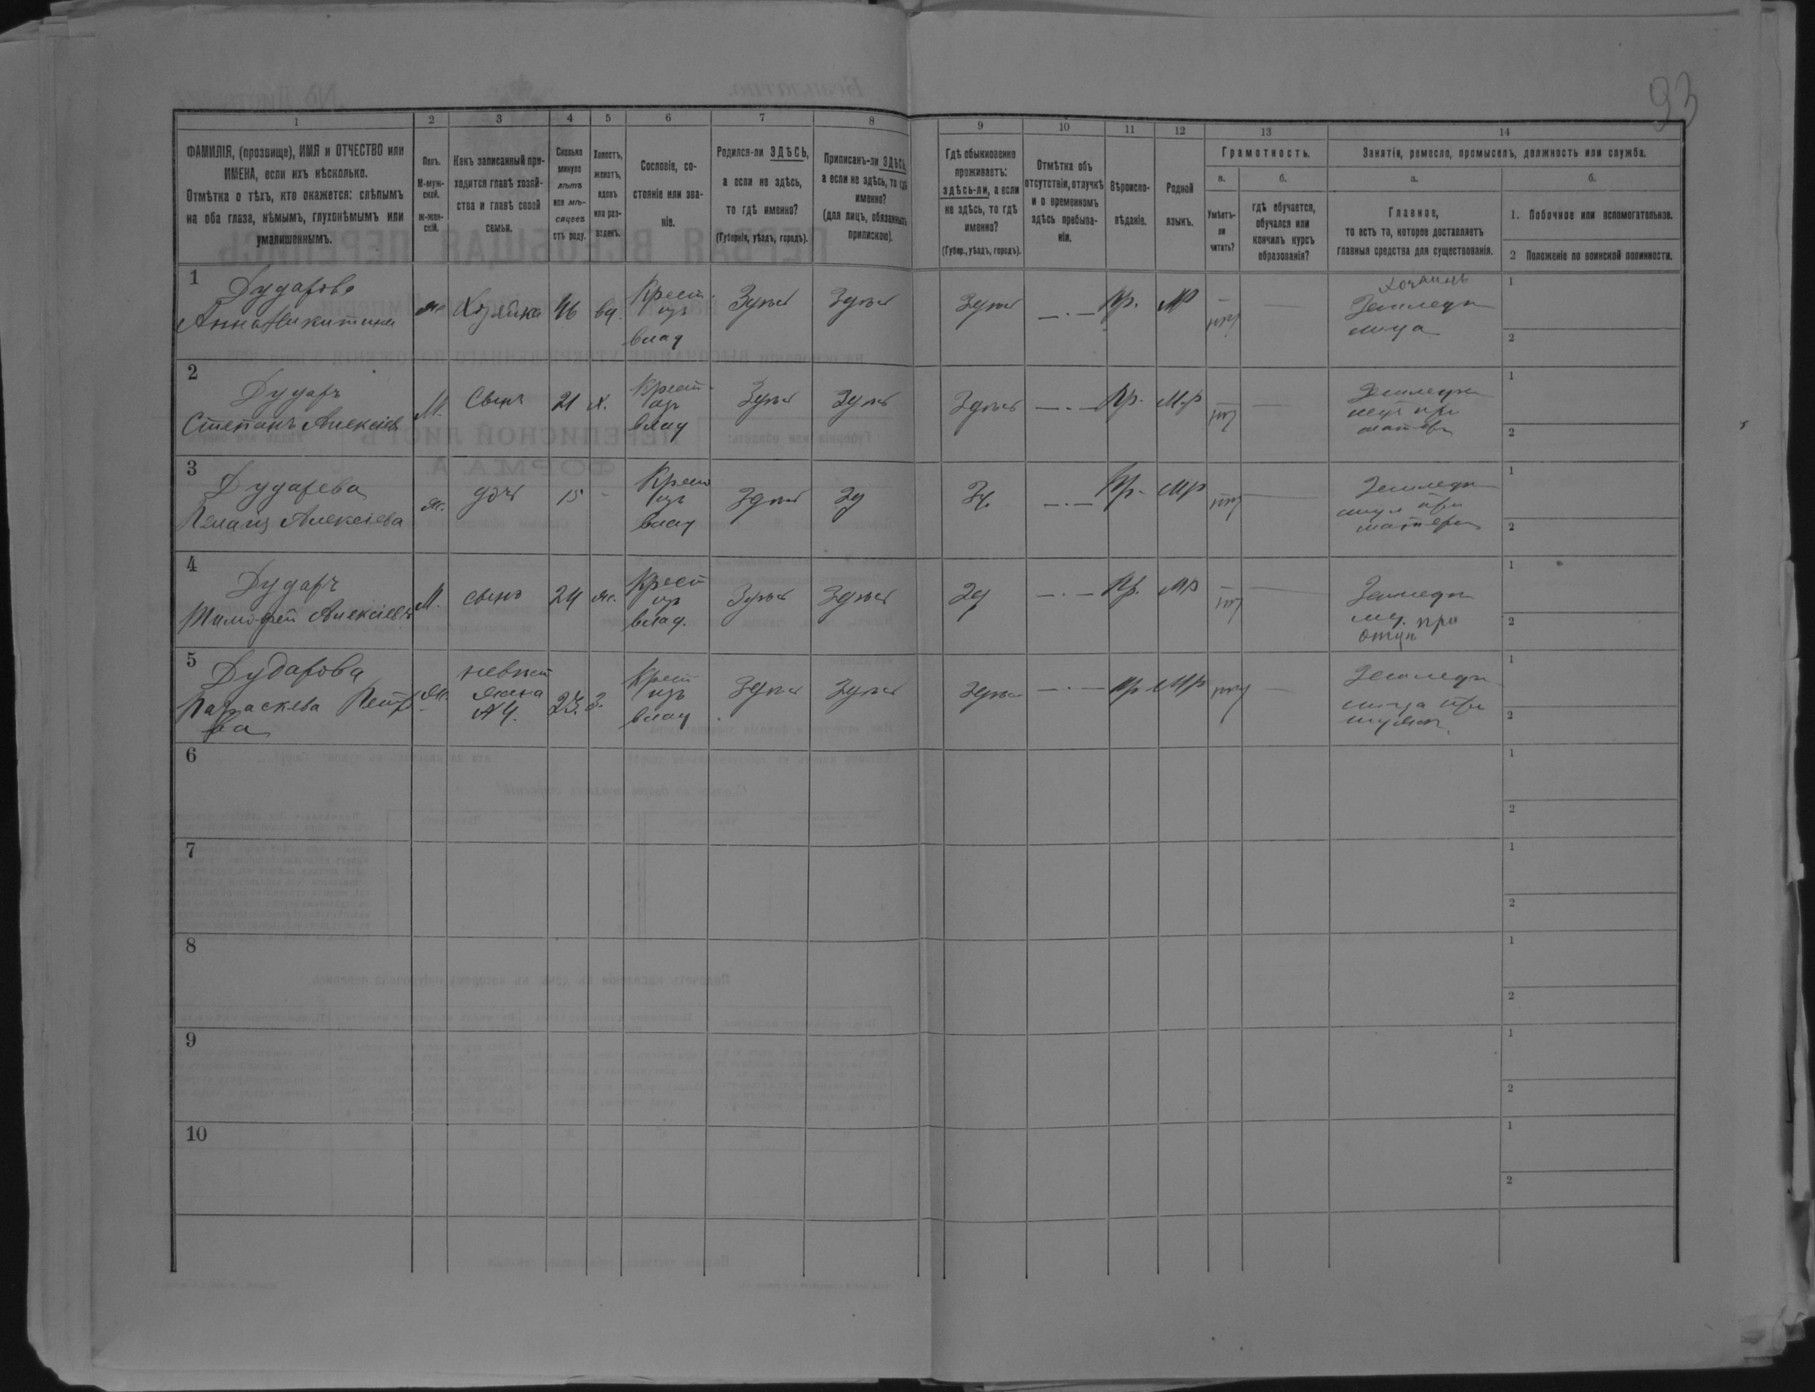 93
1 2 3 4 5 6 7 8 9 10 11 12 13 14
ФАМИЛІЯ, (прозвище), ИМЯ и ОТЧЕСТВО или
ИМЕНА, если ихъ нѣсколько.
Отмѣтка о тѣхъ, кто окажется: слѣпымъ
на оба глаза, нѣмымъ, глухонѣмымъ или
умалишеннымъ.
Полъ.
М-муж-
ской.
ж-жен-
скій.
Какъ записанный при-
ходится главѣ хозяй-
ства и главѣ своей
семьи.
Сколько
минуло
лѣтъ
или мѣ-
сяцевъ
отъ роду.
Холостъ,
женатъ,
вдовъ
или раз-
веденъ.
Сословіе, со-
стояніе или зва-
ніе.
Родился-ли ЗДѢСЬ,
а если не здѣсь,
то гдѣ именно?
(Губернія, уѣздъ, городъ).
Приписанъ-ли ЗДѢСЬ,
а если не здѣсь, то гдѣ
именно?
(для лицъ, обязанныхъ
припискою).
Гдѣ обыкновенно
проживаетъ:
здѣсь-ли, а если
не здѣсь, то гдѣ
именно?
(Губер., уѣздъ, городъ).
Отмѣтка объ
отсутствіи, отлучкѣ
и о временномъ
здѣсь пребыва-
ніи.
Вѣроиспо-
вѣданіе.
Родной
языкъ.
Грамотность.
а.
Умѣетъ-
ли
читать?
б.
гдѣ обучается,
обучался или
кончилъ курсъ
образованія?
Занятіе, ремесло, промыселъ, должность или служба.
а.
Главное,
то есть то, которое доставляетъ
главныя средства для существованія.
б.
1. Побочное или вспомогательное.
2 Положеніе по воинской повинности.
1
Дударова
Анна Никитина
ж
Хозяйка
46
вд.
Крест.
изъ
влад
Здѣсь
Здѣсь
Здѣсь
—·—
Пр.
МР
—
Земледѣ
лица
1
2
2
Дударъ
Степанъ Алексѣев
М.
Сынъ
21
х.
Крест.
изъ
влад
Здѣсь
Здѣсь
Здѣсь
—·—
Пр.
Мр
—
Земледѣ
лецъ при
матери
1
2
3
Дударева
Алексѣева
ж.
дочь
15
-
Крест
изъ
влад
Здѣсь
Зд
Зд.
—·—
Пр.
Мр
—
Земледѣ
лица при
матери
1
2
4
Дударъ
Тимофей Алексѣевъ
М.
сынъ
24
ж.
Крест
изъ
влад.
Здѣсь
Здѣсь
Зд
—·—
Пр.
Мр
—
Земледѣ
лец. при
1
2
5
Дударова
Параскева Петро
ва
ж.
невѣст
жена
№ 4.
23.
з.
Крест
изъ
влад
Здѣсь
Здѣсь
Здѣсь
—·—
Пр
Мр
—
Земледѣ
лица при
мужѣ
1
2
6
1
2
7
1
2
8
1
2
9
1
2
10
1
2